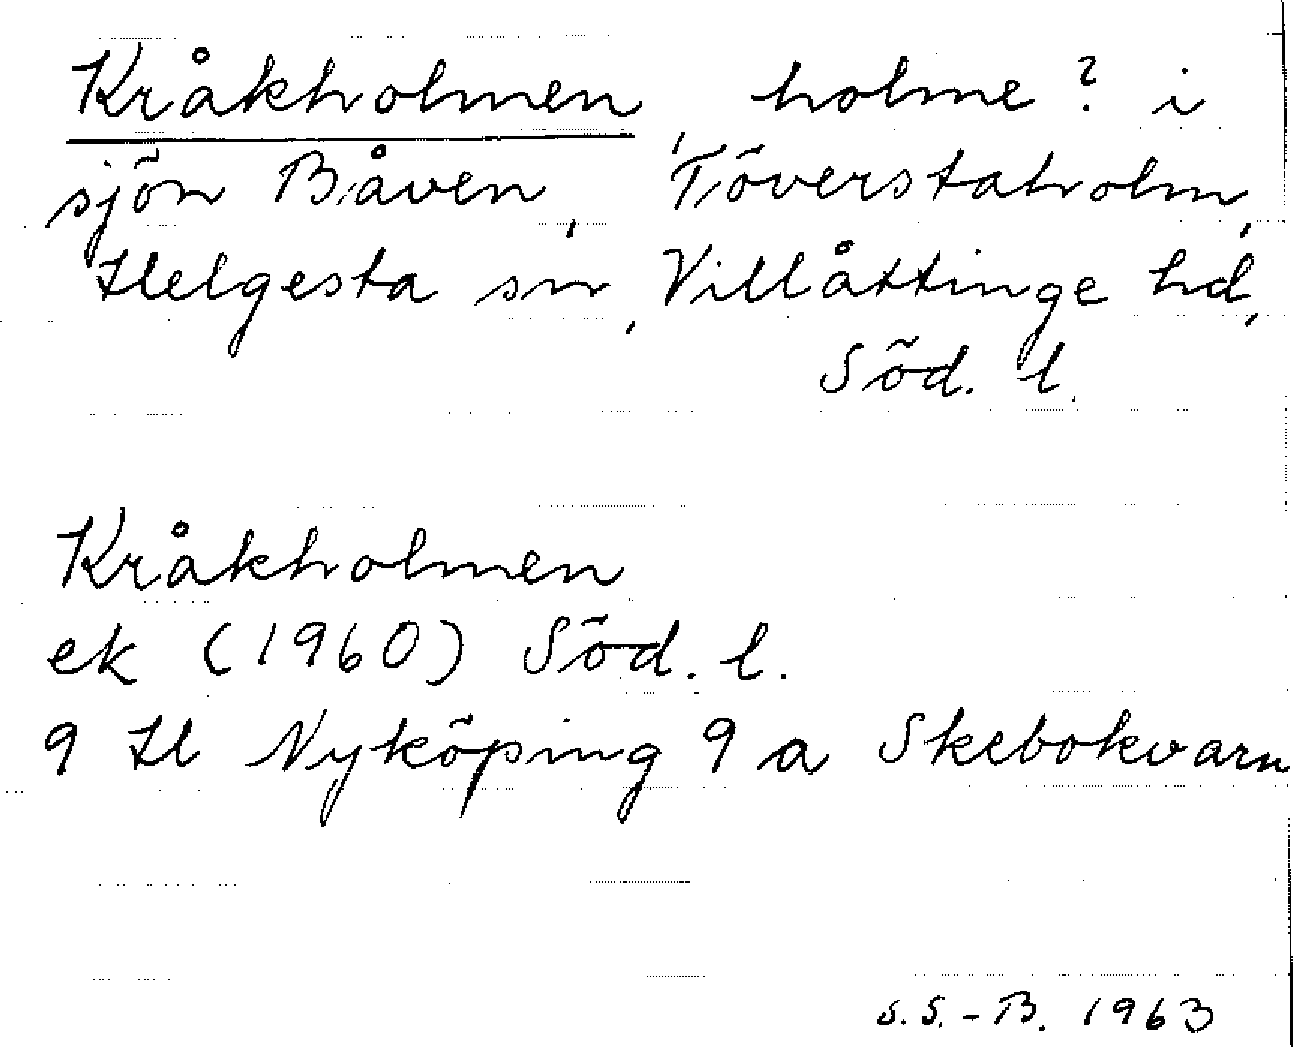 Kråkholmen holme? i
sjön Båven, Töverstaholm,
Helgesta sn, Villåttinge hd,
Söd. l.
Kråkholmen
ek (1960) Söd. l.
9 H Nyköping 9 a Skebokvarn
S.S.-B. 1963